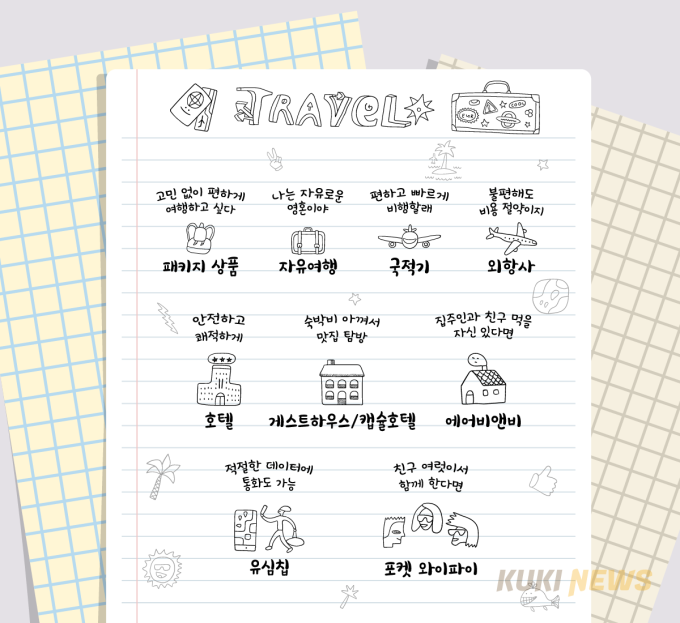 TRAVEL
EUR
COOL
고민 없이 편하게
여행하고 싶다
나는 자유로운
영혼이야
편하고 빠르게
비행할래
불편해도
비용 절약이지
패키지 상품
자유여행
국적기
외항사
안전하고
쾌적하게
숙박비 아껴서
맛집 탐방
집주인과 친구 먹을
자신 있다면
호텔
게스트하우스/캡슐호텔
에어비앤비
적절한 데이터에
통화도 가능
친구 여럿이서
함께 한다면
유심칩
포켓 와이파이
KUKI NEWS